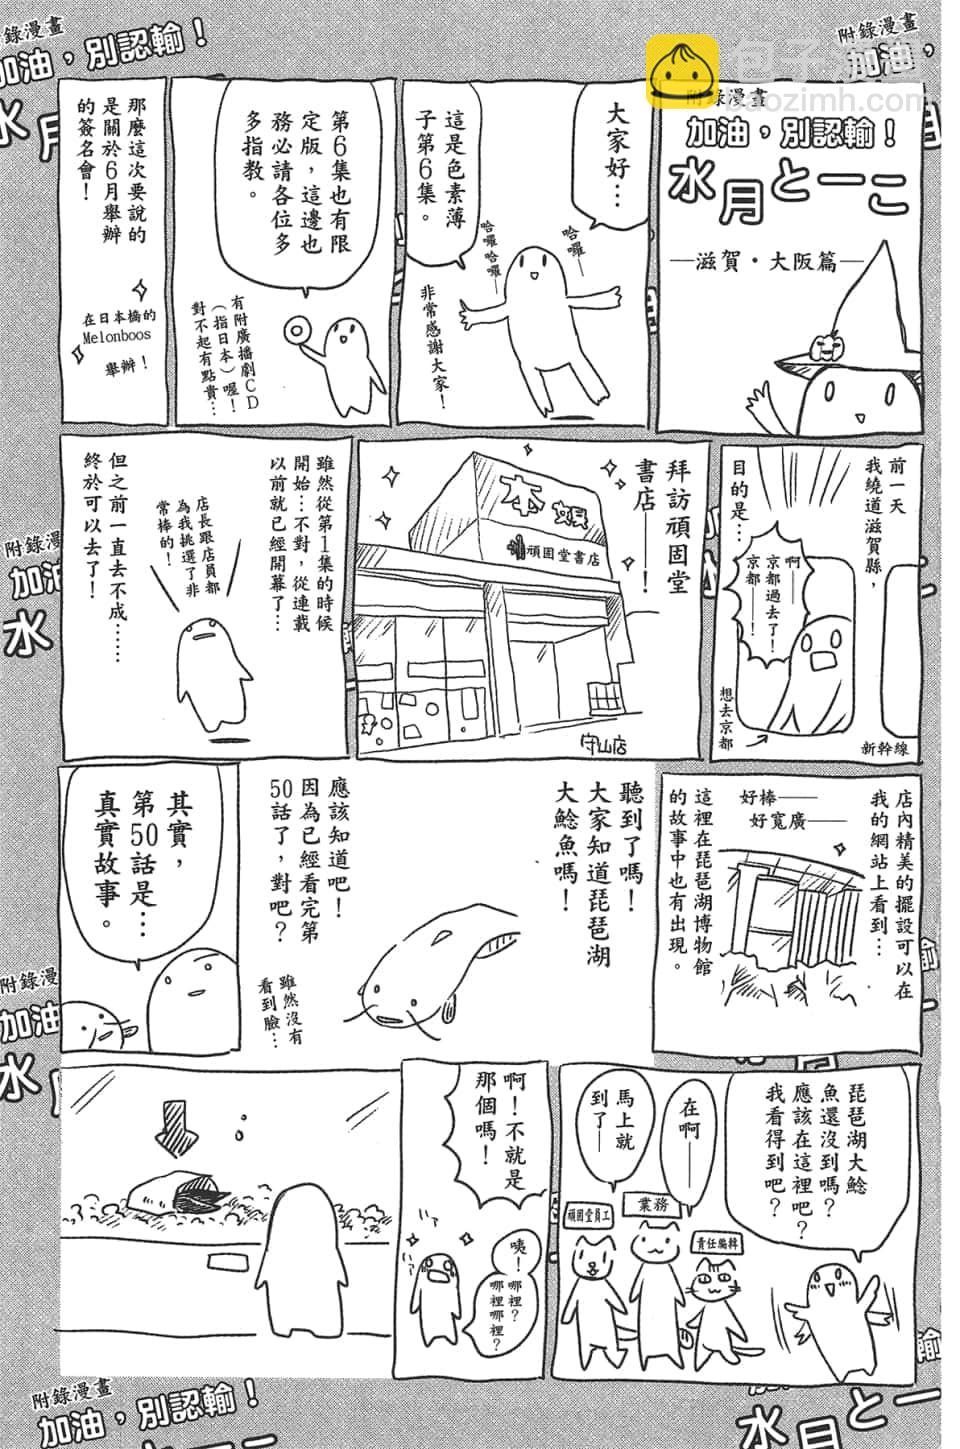 附錄漫畫
加油，別認輸！
水月とーこ
—滋賀・大阪篇—
包子漫画
baozimh.com
大家好…
哈囉——
哈囉哈囉——
這是色素薄
子第6集。
非常感謝大家！
第6集也有限
定版，這邊也
務必請各位多
多指教。
有附廣播劇CD
（指日本）喔！
對不起有點貴…
那麼這次要說的
是關於6月舉辦
的簽名會！
在日本橋的
Melonboos
舉辦！
前一天
我繞道滋賀縣，
目的是…
啊——
京都過去了！
京都——！
想去京都
新幹線
拜訪頑固堂
書店——！
本
頑固堂書店
守山店
雖然從第1集的時候
開始…不對，從連載
以前就已經開幕了…
店長跟店員都
為我挑選了非
常棒的！
但之前一直去不成……
終於可以去了！
店內精美的擺設可以在
我的網站上看到…
好棒——
好寬廣——
這裡在琵琶湖博物館
的故事中也有出現。
聽到了嗎！
大家知道琵琶湖
大鯰魚嗎！
應該知道吧！
因為已經看完第
50話了，對吧？
雖然沒有
看到臉…
其實，
第50話是…
真實故事。
琵琶湖大鯰
魚還沒到嗎？
應該在這裡吧？
我看得到吧？
在啊——
馬上就
到了——
頑固堂員工
業務
責任編輯
啊！不就是
那個嗎！
咦！
哪裡？
哪裡哪裡？
附錄漫畫
加油，別認輸！
水月とーこ